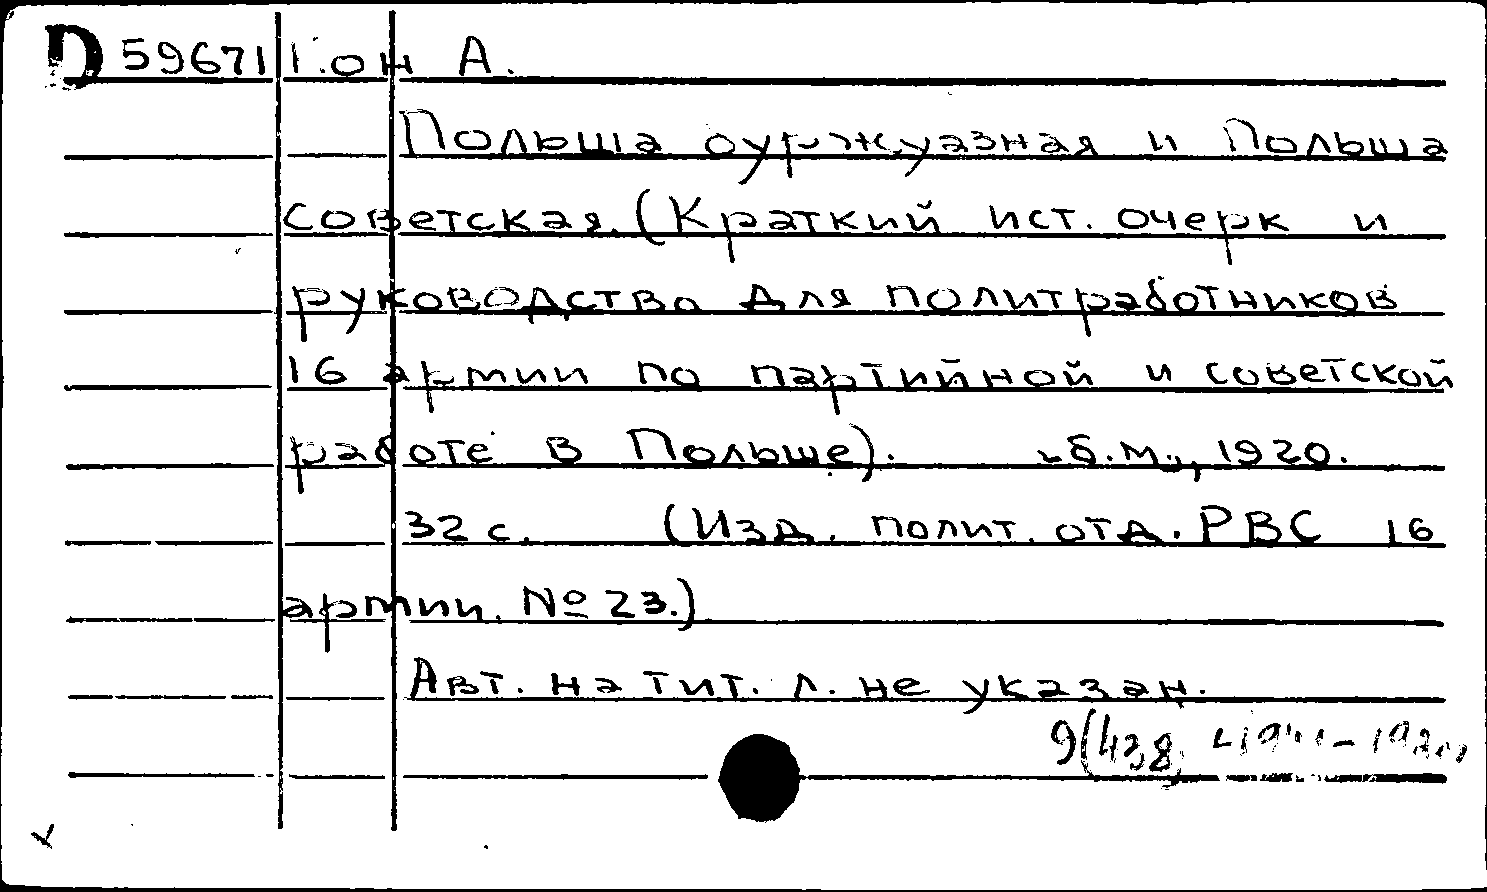 D 59671 Гон А.
Польша буржуазная и Польша
советская. (Краткий ист. очерк и
руководство для политработников
16 армии по партийной и советской
работе в Польше). б.м., 1920.
32 с. (Изд. полит. отд. РВС 16
армии. № 23.)
Авт. на тит. л. не указан.
9(438)